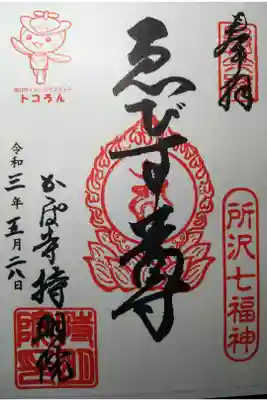 奉拝
所沢七福神
ゑびす尊
かっぱ寺持明院
令和三年五月二八日
所沢市イメージマスコット
トコろん